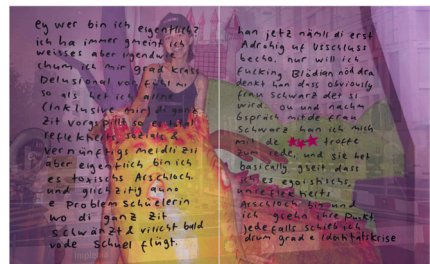 ey wer bin ich eigentlich?
ich ha immer gmeint ich
weisses aber irgendwie
chum ich mir grad krass
Delusional vor. fühl mi
so als het ich alne
(inklusive mir) di ganz
zit vorgspillt so es total
reflektierts, sozials &
vernünftigs meidli zii
aber eigentlich bin ich
es toxischs Arschloch.
und glichzitig au no
e Problemschüelerin
wo di ganz zit
schwänzt & vilicht bald
vode Schuel flügt.
han jetz nämli di erst
Adrohig uf Usschluss
becho. nur will ich
fucking Blödian nöd dra
denkt han dass obviously
frau Schwarz det si
wird. ou und nachm
Gspräch mit de frau
Schwarz han ich mich
mit de troffe
zum rede, und sie het
basically gseit dass
ich es egoistischs,
unreflektierts
Arschloch bin und
ich gsehn ihre Punkt.
jedefalls schieb ich
drum grad e Identitätskrise